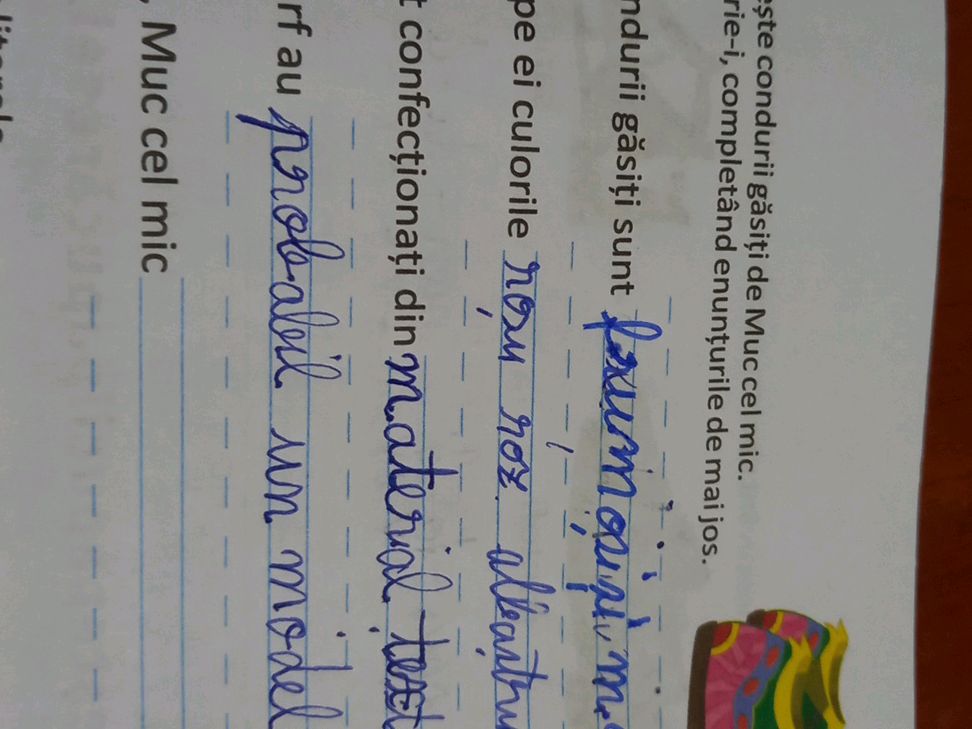 ește condurii găsiți de Muc cel mic.
rie-i, completând enunțurile de mai jos.
ndurii găsiți sunt frumoși și
pe ei culorile roșu roz albastru
t confecționați din material text
rf au probabil un model
, Muc cel mic